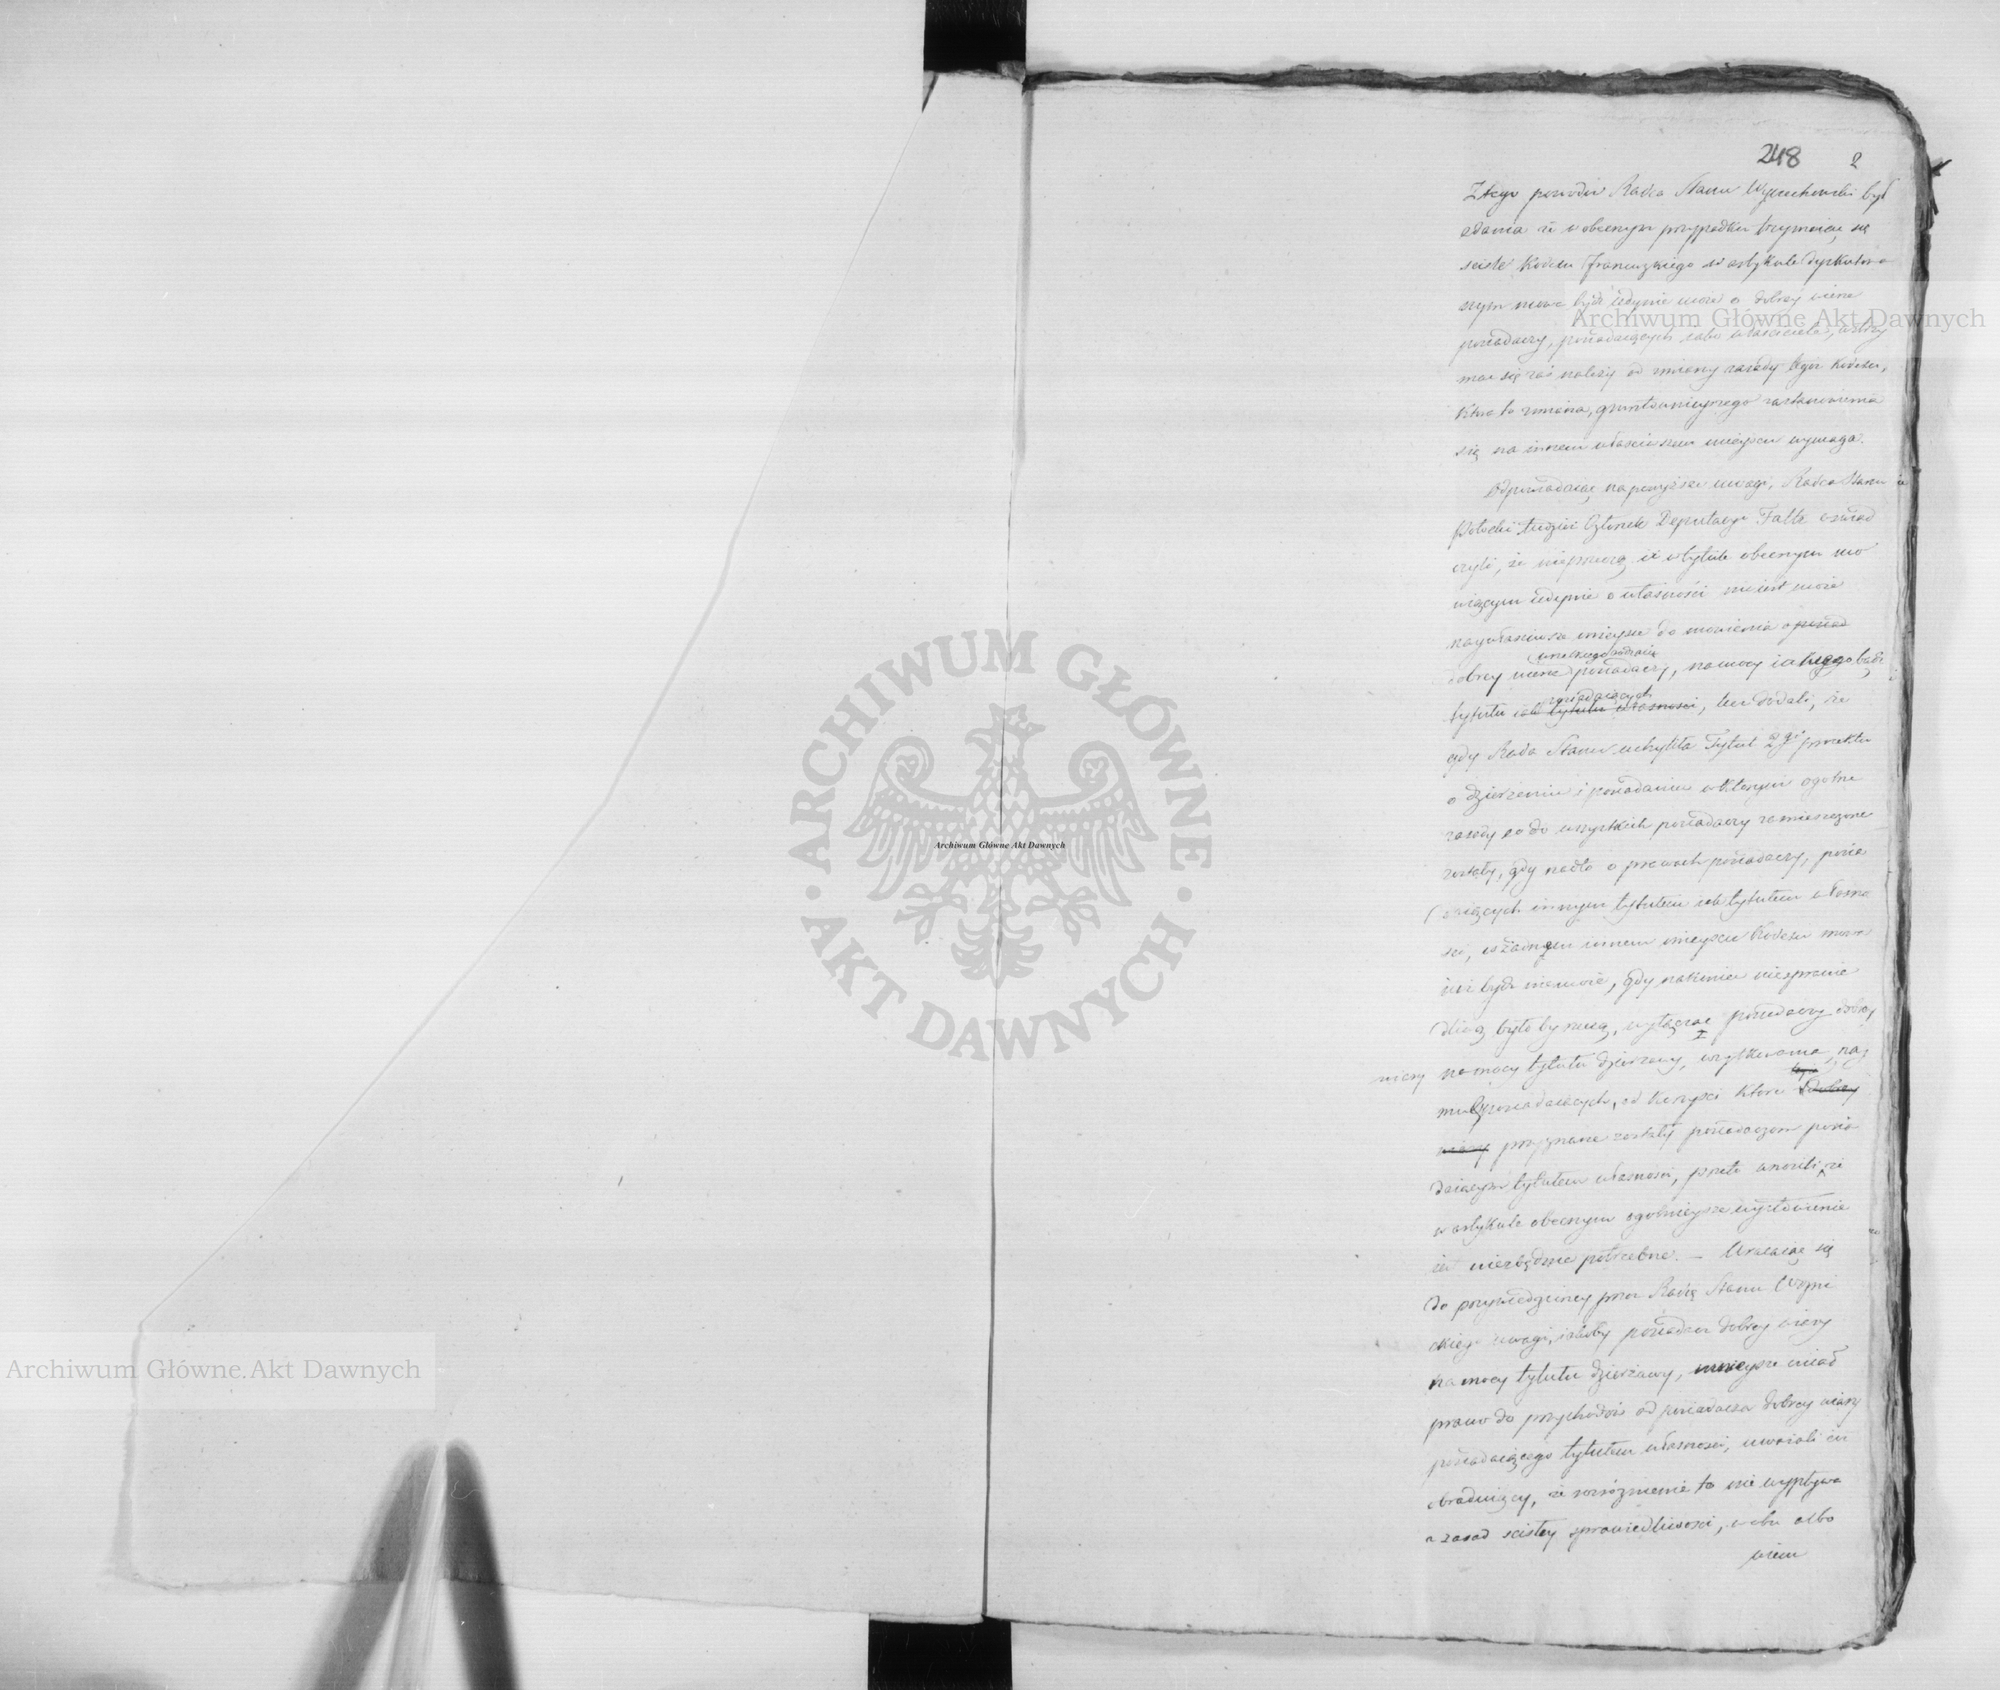 248 2
Z tego powodu Radca Stanu Wyczechowski był
zdania że w obecnym przypadku trzymaiąc się
ściśle Kodexu Francuzkiego w artykule dyskutowa
nym mowa bydź iedynie może o dobrey wierze
posiadaczy, posiadaiących iako właściciele, wstrzy
mać się zaś należy od zmiany zasady tegoż Kodexu,
która to zmiana, gruntownieyszego zastanowienia
się na innem właściwszem mieyscu wymaga.
Odpowiadaiąc na powyższe uwagi, Radca Stanu
Potocki tudzież Członek Deputacyi Faltz oświad
czyli, że nieprzeczą iż w tytule obecnym mó
wiącym iedynie o własności nie iest może
naywłaściwsze mieysce do mówienia o posiad
wszelkiego rodzaiu
dobrey wierze posiadaczy, na mocy iakiego bądź
posiadaiących
tytułu iak tytułu własności, lecz dodali, że
gdy Rada Stanu uchyliła Tytuł 2gi proiektu
o dzierżeniu i posiadaniu w którym ogólne
zasady co do wszystkich posiadaczy zamieszczone
zostały, gdy nadto o prawach posiadaczy, posia
daiących innym tytułem iak tytułem własno
ści, w żadnym innem mieyscu Kodexu mowa
iuż bydź nie może, gdy nakoniec niesprawie
dliwą byłoby rzeczą, wyłączać posiadaczy dobrey
wiary na mocy tytułu dzierżawy, użytkowania, nay
mu posiadaiących, od korzyści które dobrey
wiary przyznane zostały posiadaczom posia
daiącym tytułem własności, przeto wnosili, że
w artykule obecnym ogólnieysze wysłowienie
iest niezbędnie potrzebne. — Wracaiąc się
do przywiedzioney przez Radcę Stanu Woźni
ckiego uwagi, iakoby posiadacz dobrey wiary
na mocy tytułu dzierżawy, mnieysze miał
prawo do przychodów od posiadacza dobrey wiary
posiadaiącego tytułem własności, uważali ciż
obraduiący, że rozróżnienie to nie wypływa
z zasad ścisłey sprawiedliwości, w obu albo
wiem
Archiwum Główne Akt Dawnych
Archiwum Główne Akt Dawnych
Archiwum Główne Akt Dawnych
ARCHIWUM GŁÓWNE · AKT DAWNYCH ·